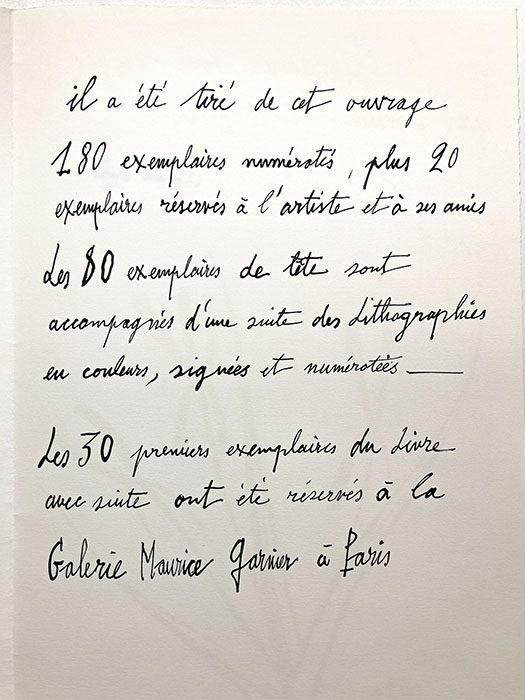 il a été tiré de cet ouvrage
180 exemplaires numérotés, plus 20
exemplaires réservés à l'artiste et à ses amis
Les 80 exemplaires de tête sont
accompagnés d'une suite des Lithographies
en couleurs, signées et numérotées —
Les 30 premiers exemplaires du Livre
avec suite ont été réservés à la
Galerie Maurice Garnier à Paris